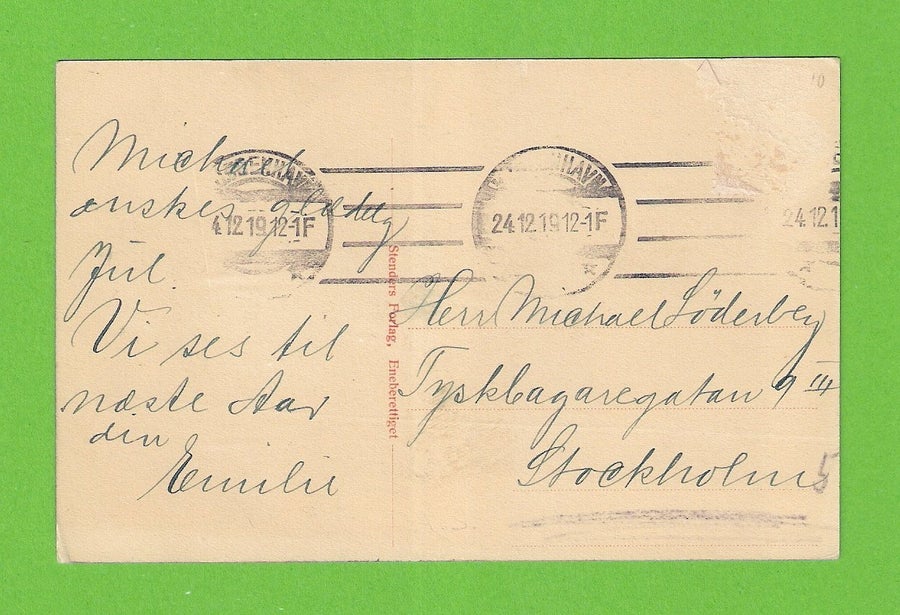 Michael
ønskes glædelig
Jul.
Vi ses til
næste Aar
din
Emilie
KØBENHAVN
4.12.19.12-1F
KØBENHAVN
24.12.19.12-1F
24.12.1
Stenders Forlag, Eneberettiget
Herr Michael Söderberg
Tyskbagaregatan 9 III
Stockholm
5
10